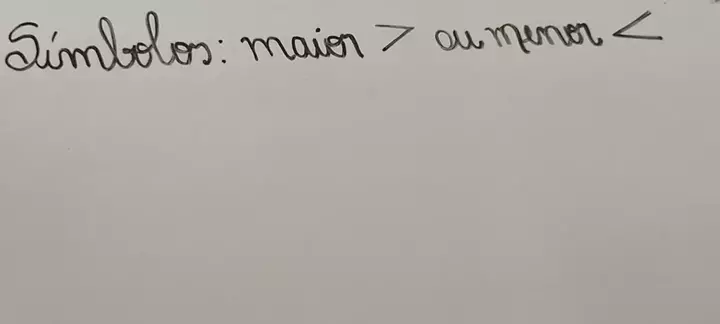 Símbolos: maior > ou menor <